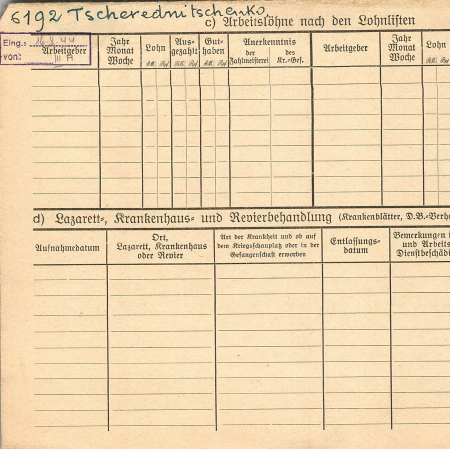 6192 Tscherednitschenko
c) Arbeitslöhne nach den Lohnlisten
Eing.: 16.8.44
von: III A
Arbeitgeber
Jahr
Monat
Woche
Lohn
RM. Rpf
Aus-
gezahlt
RM. Rpf
Gut-
haben
RM. Rpf
Anerkenntnis
der
Zahlmeisterei
des
Kr.-Gef.
Arbeitgeber
Jahr
Monat
Woche
Lohn
RM. Rpf
d) Lazarett-, Krankenhaus- und Revierbehandlung (Krankenblätter, D.B.-Verh
Aufnahmedatum
Ort,
Lazarett, Krankenhaus
oder Revier
Art der Krankheit und ob auf
dem Kriegsschauplatz oder in der
Gefangenschaft erworben
Entlassungs-
datum
Bemerkungen
und Arbeits
Dienstbeschädi